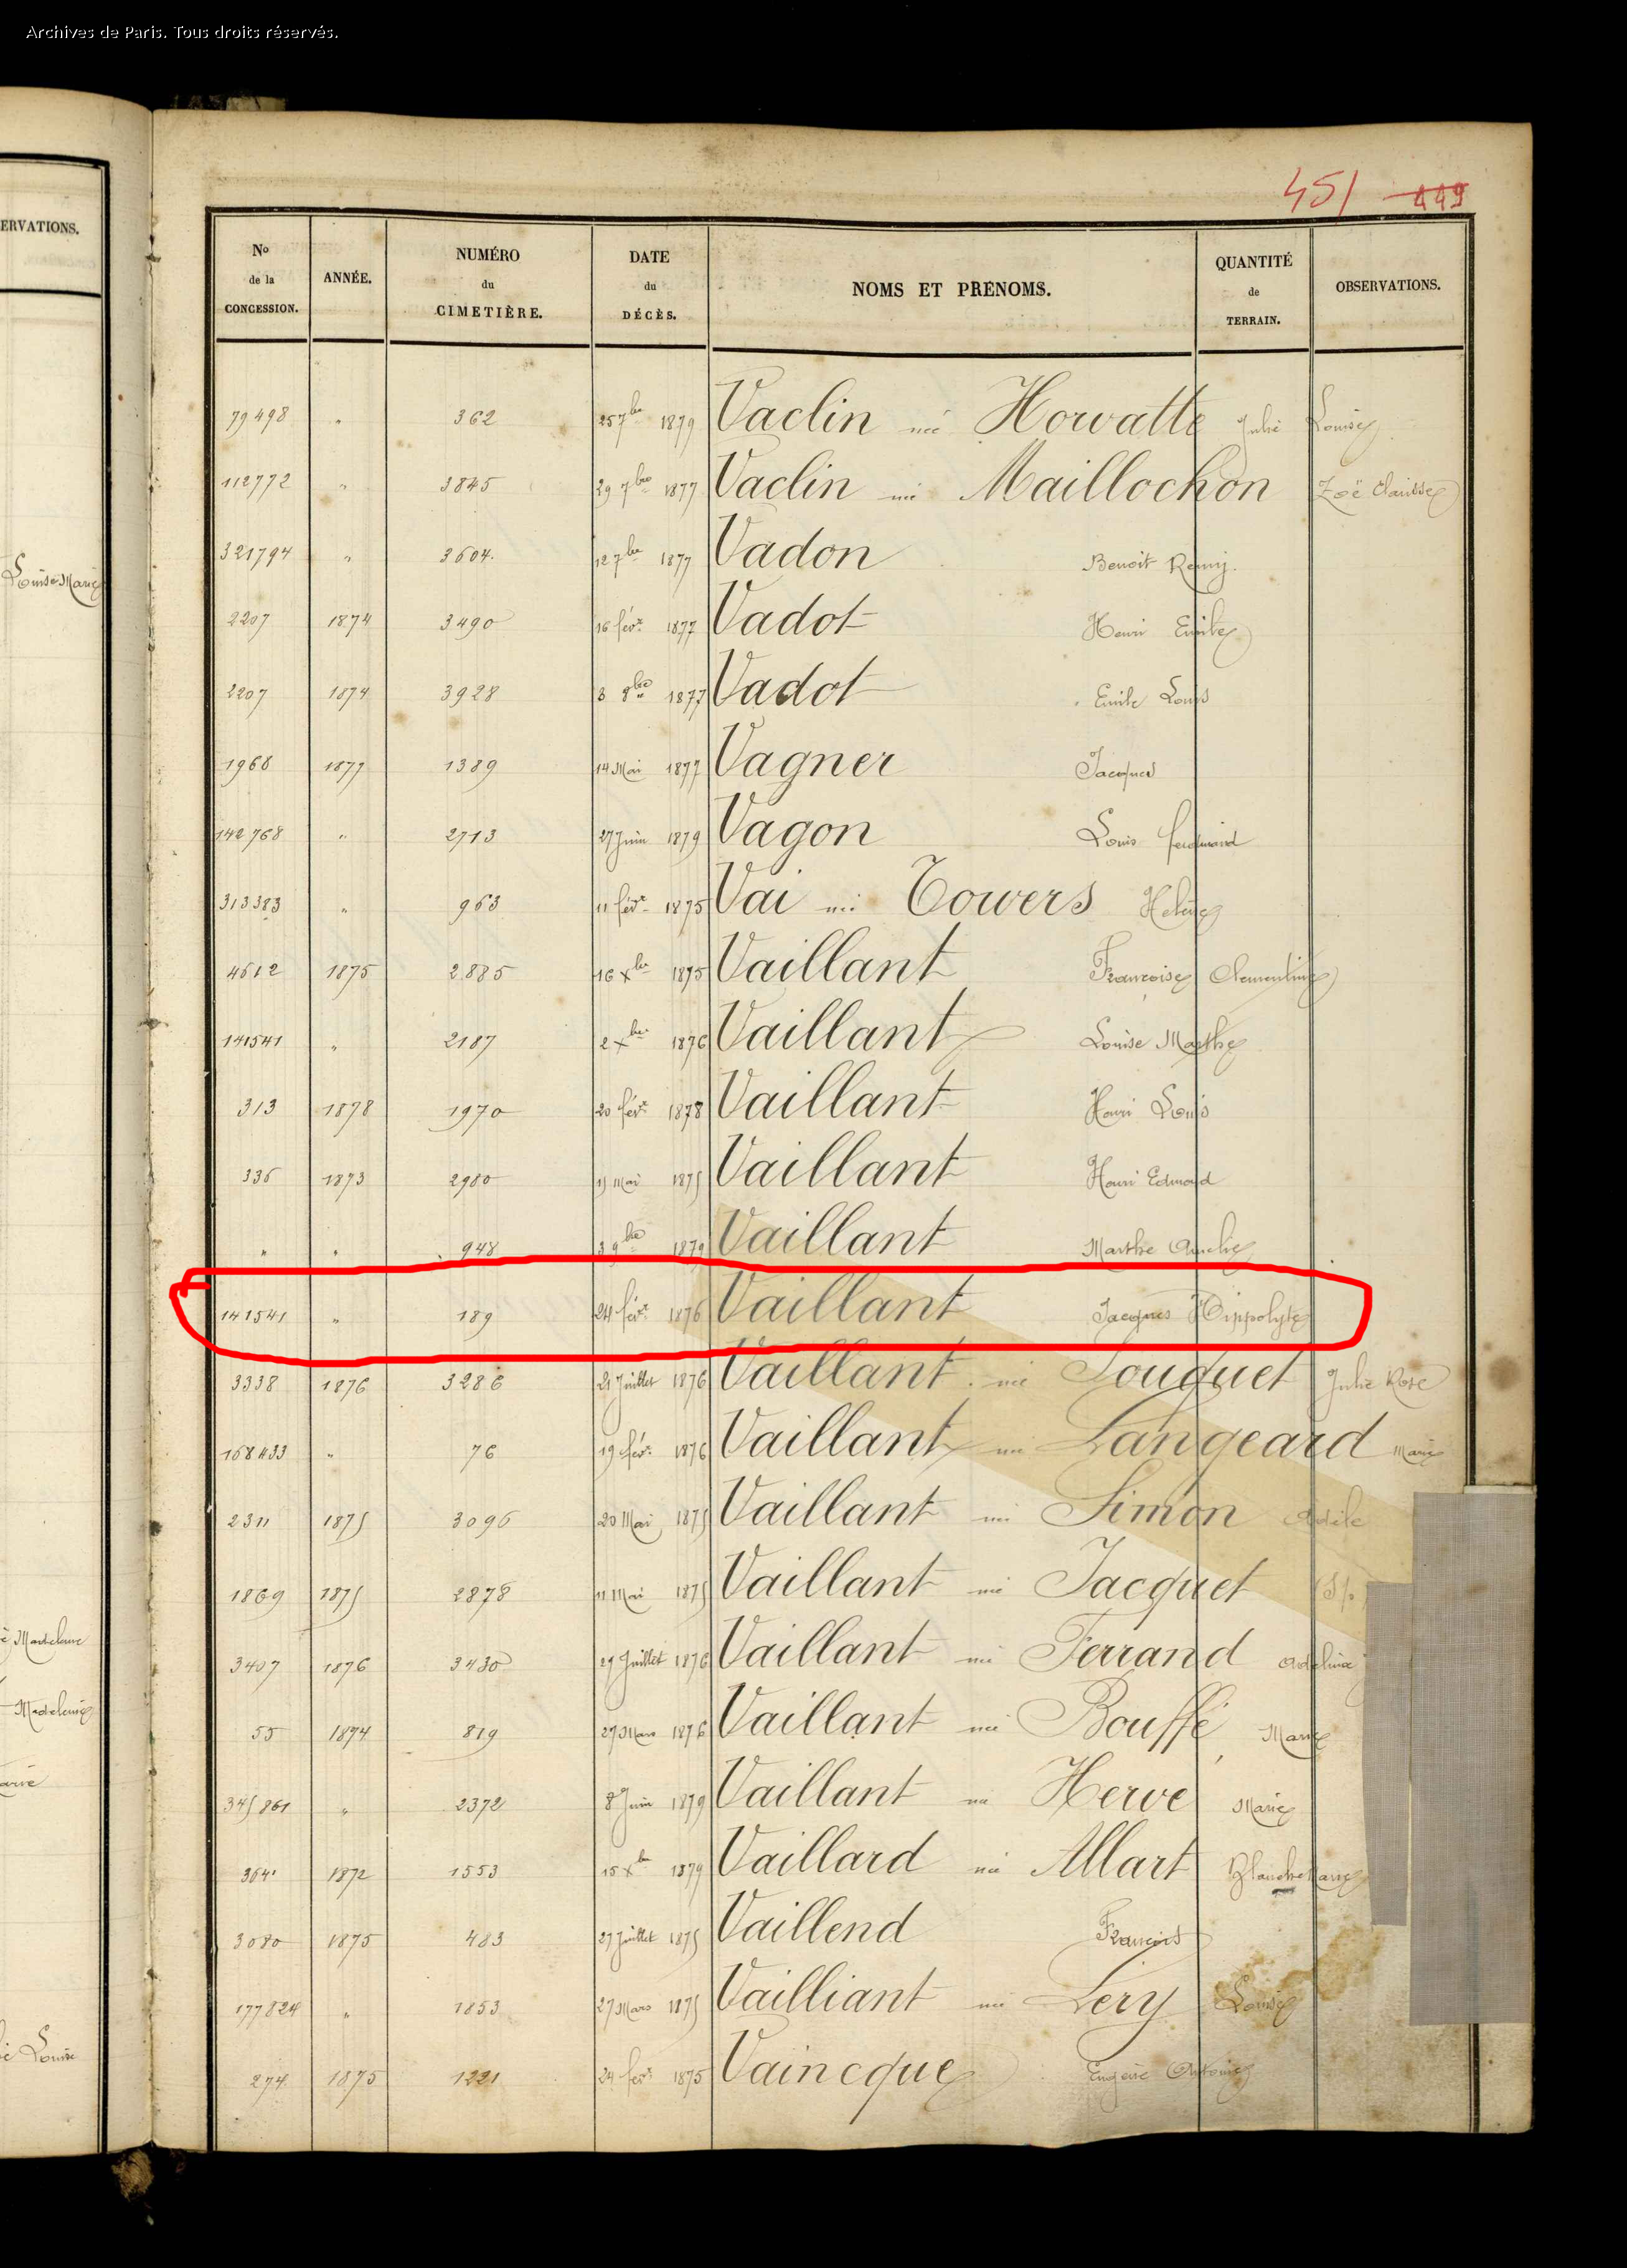 Archives de Paris. Tous droits réservés.
451 449
ERVATIONS.
No de la CONCESSION. ANNÉE. NUMÉRO du CIMETIÈRE. DATE du DÉCÈS. NOMS ET PRÉNOMS. QUANTITÉ de TERRAIN. OBSERVATIONS.
79498 " 362 25 7bre 1879 Vaclin née Horvatte Julie Louise
112772 " 3845 29 7bre 1877 Vaclin née Maillochon Zoë Clarisse
321794 " 3604. 12 7bre 1877 Vadon Benoit Remy.
Louise Marie
2207 1874 3490 16 févr. 1877 Vadot Henri Emile
2207 1874 3928 3 8bre 1877 Vadot Emile Louis
1968 1877 1389 14 Mai 1877 Vagner Jacques
142768 " 2713 27 Juin 1879 Vagon Louis ferdinand
313383 " 963 11 févr. 1875 Vai née Towers Helene
4612 1875 2885 16 Xbre 1875 Vaillant Françoise Clementine
141541 " 2187 2 Xbre 1876 Vaillant Louise Marthe
313 1878 1970 20 févr. 1878 Vaillant Henri Louis
336 1873 2980 15 Mai 1875 Vaillant Henri Edmond
" " 948 3 9bre 1879 Vaillant Marthe
141541 " 189 24 févr. 1876 Vaillant Jacques Hippolyte
3338 1876 3286 21 Juillet 1876 Vaillant née Souquet Julie Rose
168433 " 76 19 févr. 1876 Vaillant née Langeard Marie
2311 1875 3096 20 Mai 1875 Vaillant née Simon Adèle
1869 1875 2878 11 Mai 1875 Vaillant née Jacquet
3407 1876 3430 29 Juillet 1876 Vaillant née Ferrand Adelina
55 1874 819 27 Mars 1876 Vaillant née Bouffé Marie
345861 " 2372 8 Juin 1879 Vaillant née Hervé Marie
364 1872 1553 15 Xbre 1879 Vaillard née Allart Blanche Marie
3080 1875 483 27 Juillet 1875 Vaillend François
177824 " 1853 27 Mars 1875 Vailliant née Lery Louise
Louise
274 1875 1221 24 févr. 1875 Vaincque Eugène Antoine